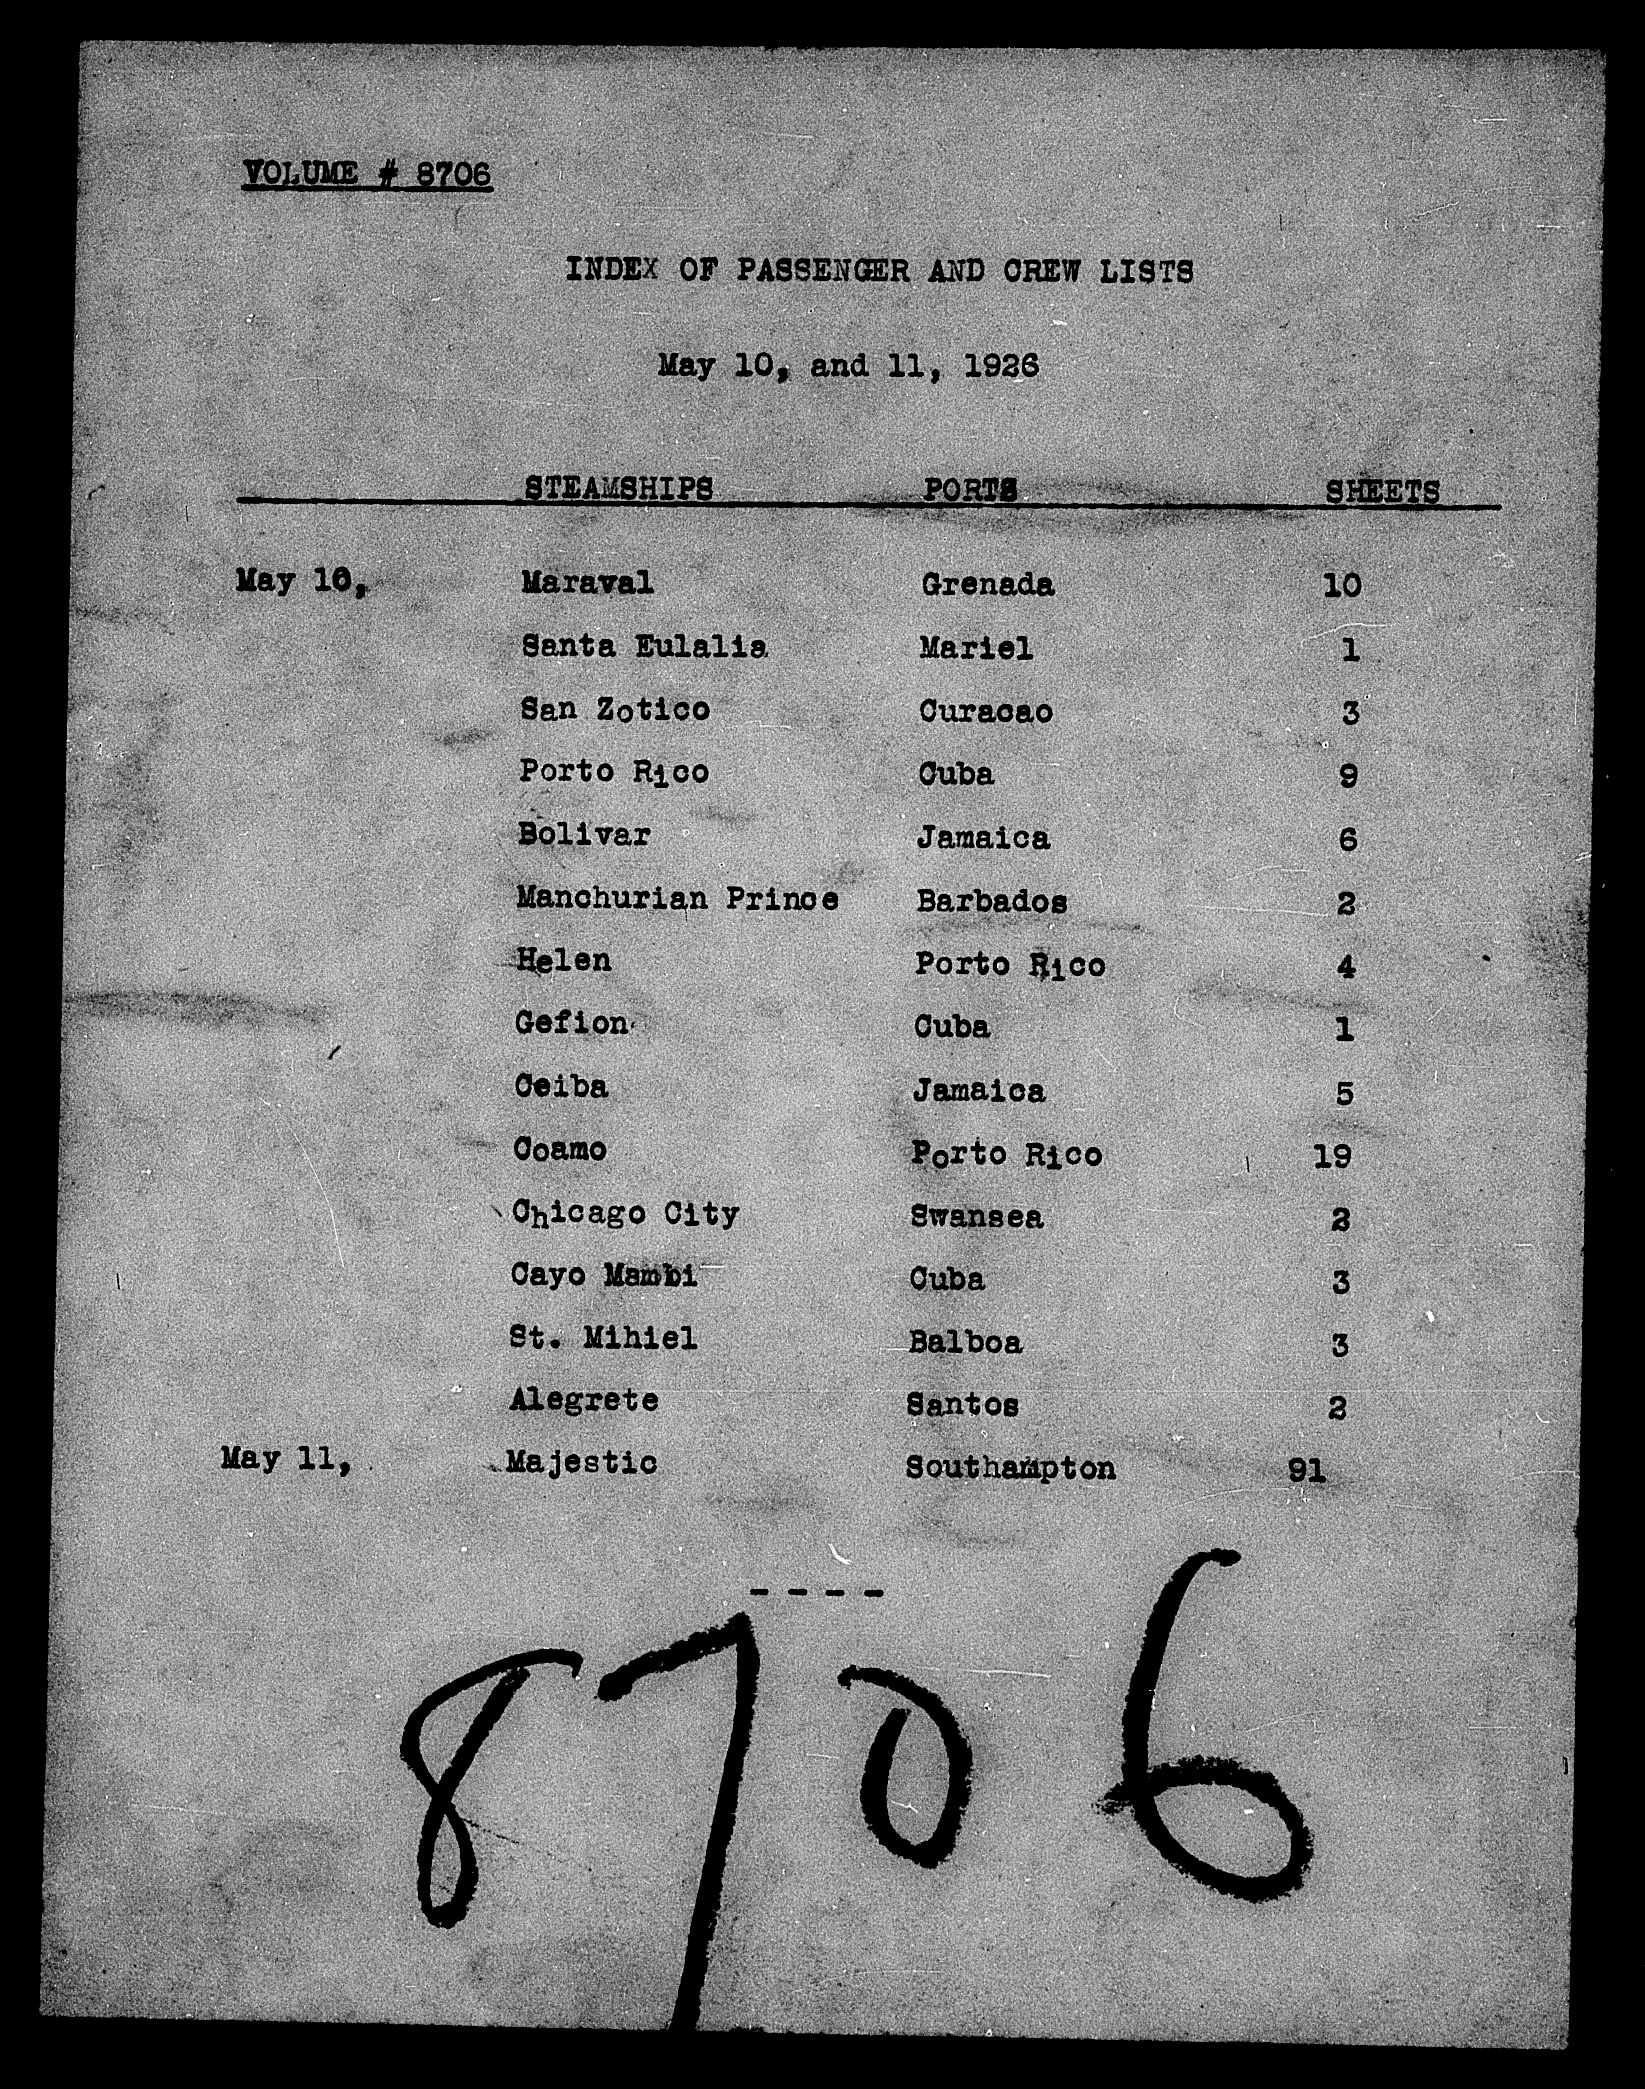 VOLUME # 8706
INDEX OF PASSENGER AND CREW LISTS
May 10, and 11, 1926
STEAMSHIPS PORTS SHEETS
May 10, Maraval Grenada 10
Santa Eulalia Mariel 1
San Zotico Curacao 3
Porto Rico Cuba 9
Bolivar Jamaica 6
Manchurian Prince Barbados 2
Helen Porto Rico 4
Gefion Cuba 1
Ceiba Jamaica 5
Coamo Porto Rico 19
Chicago City Swansea 2
Cayo Mambi Cuba 3
St. Mihiel Balboa 3
Alegrete Santos 2
May 11, Majestic Southampton 91
- - - -
8706